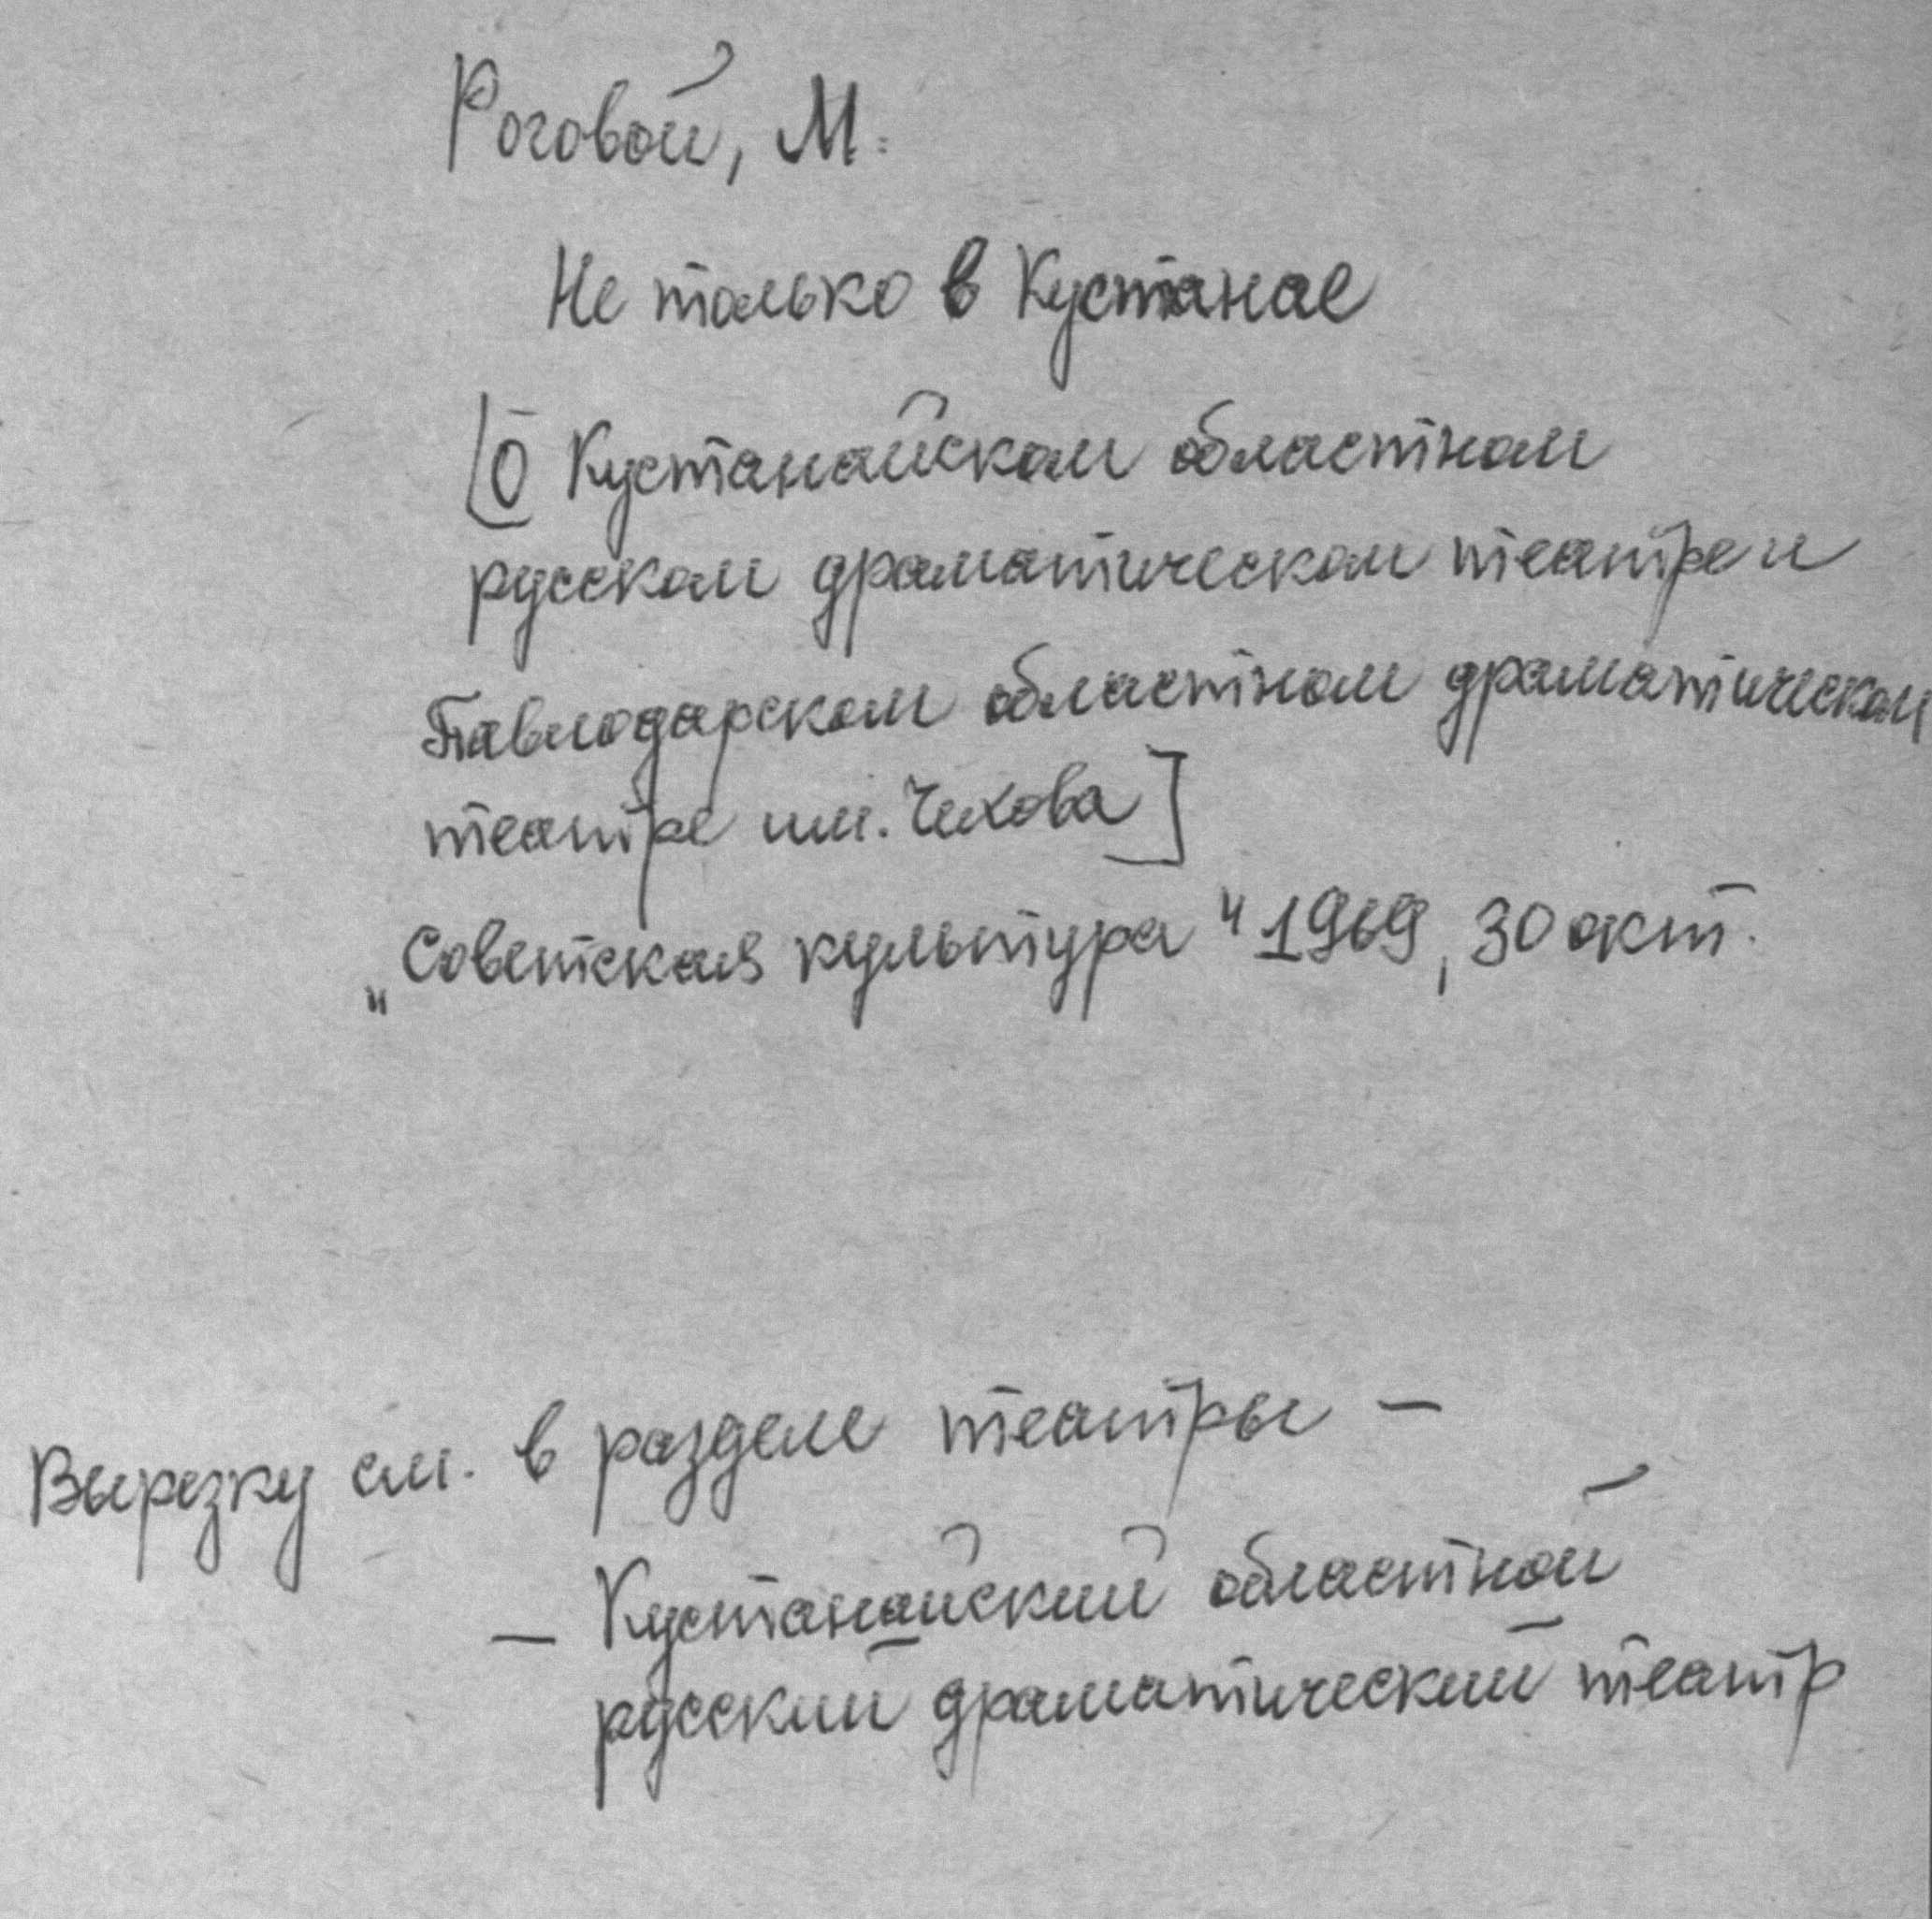 Роговой, М.
Не только в Кустанае
[О Кустанайском областном
русском драматическом театре и
Павлодарском областном драматическом
театре им. Чехова]
„Советская культура" 1969, 30 окт.
Вырезку см. в разделе театры —
— Кустанайский областной
русский драматический театр